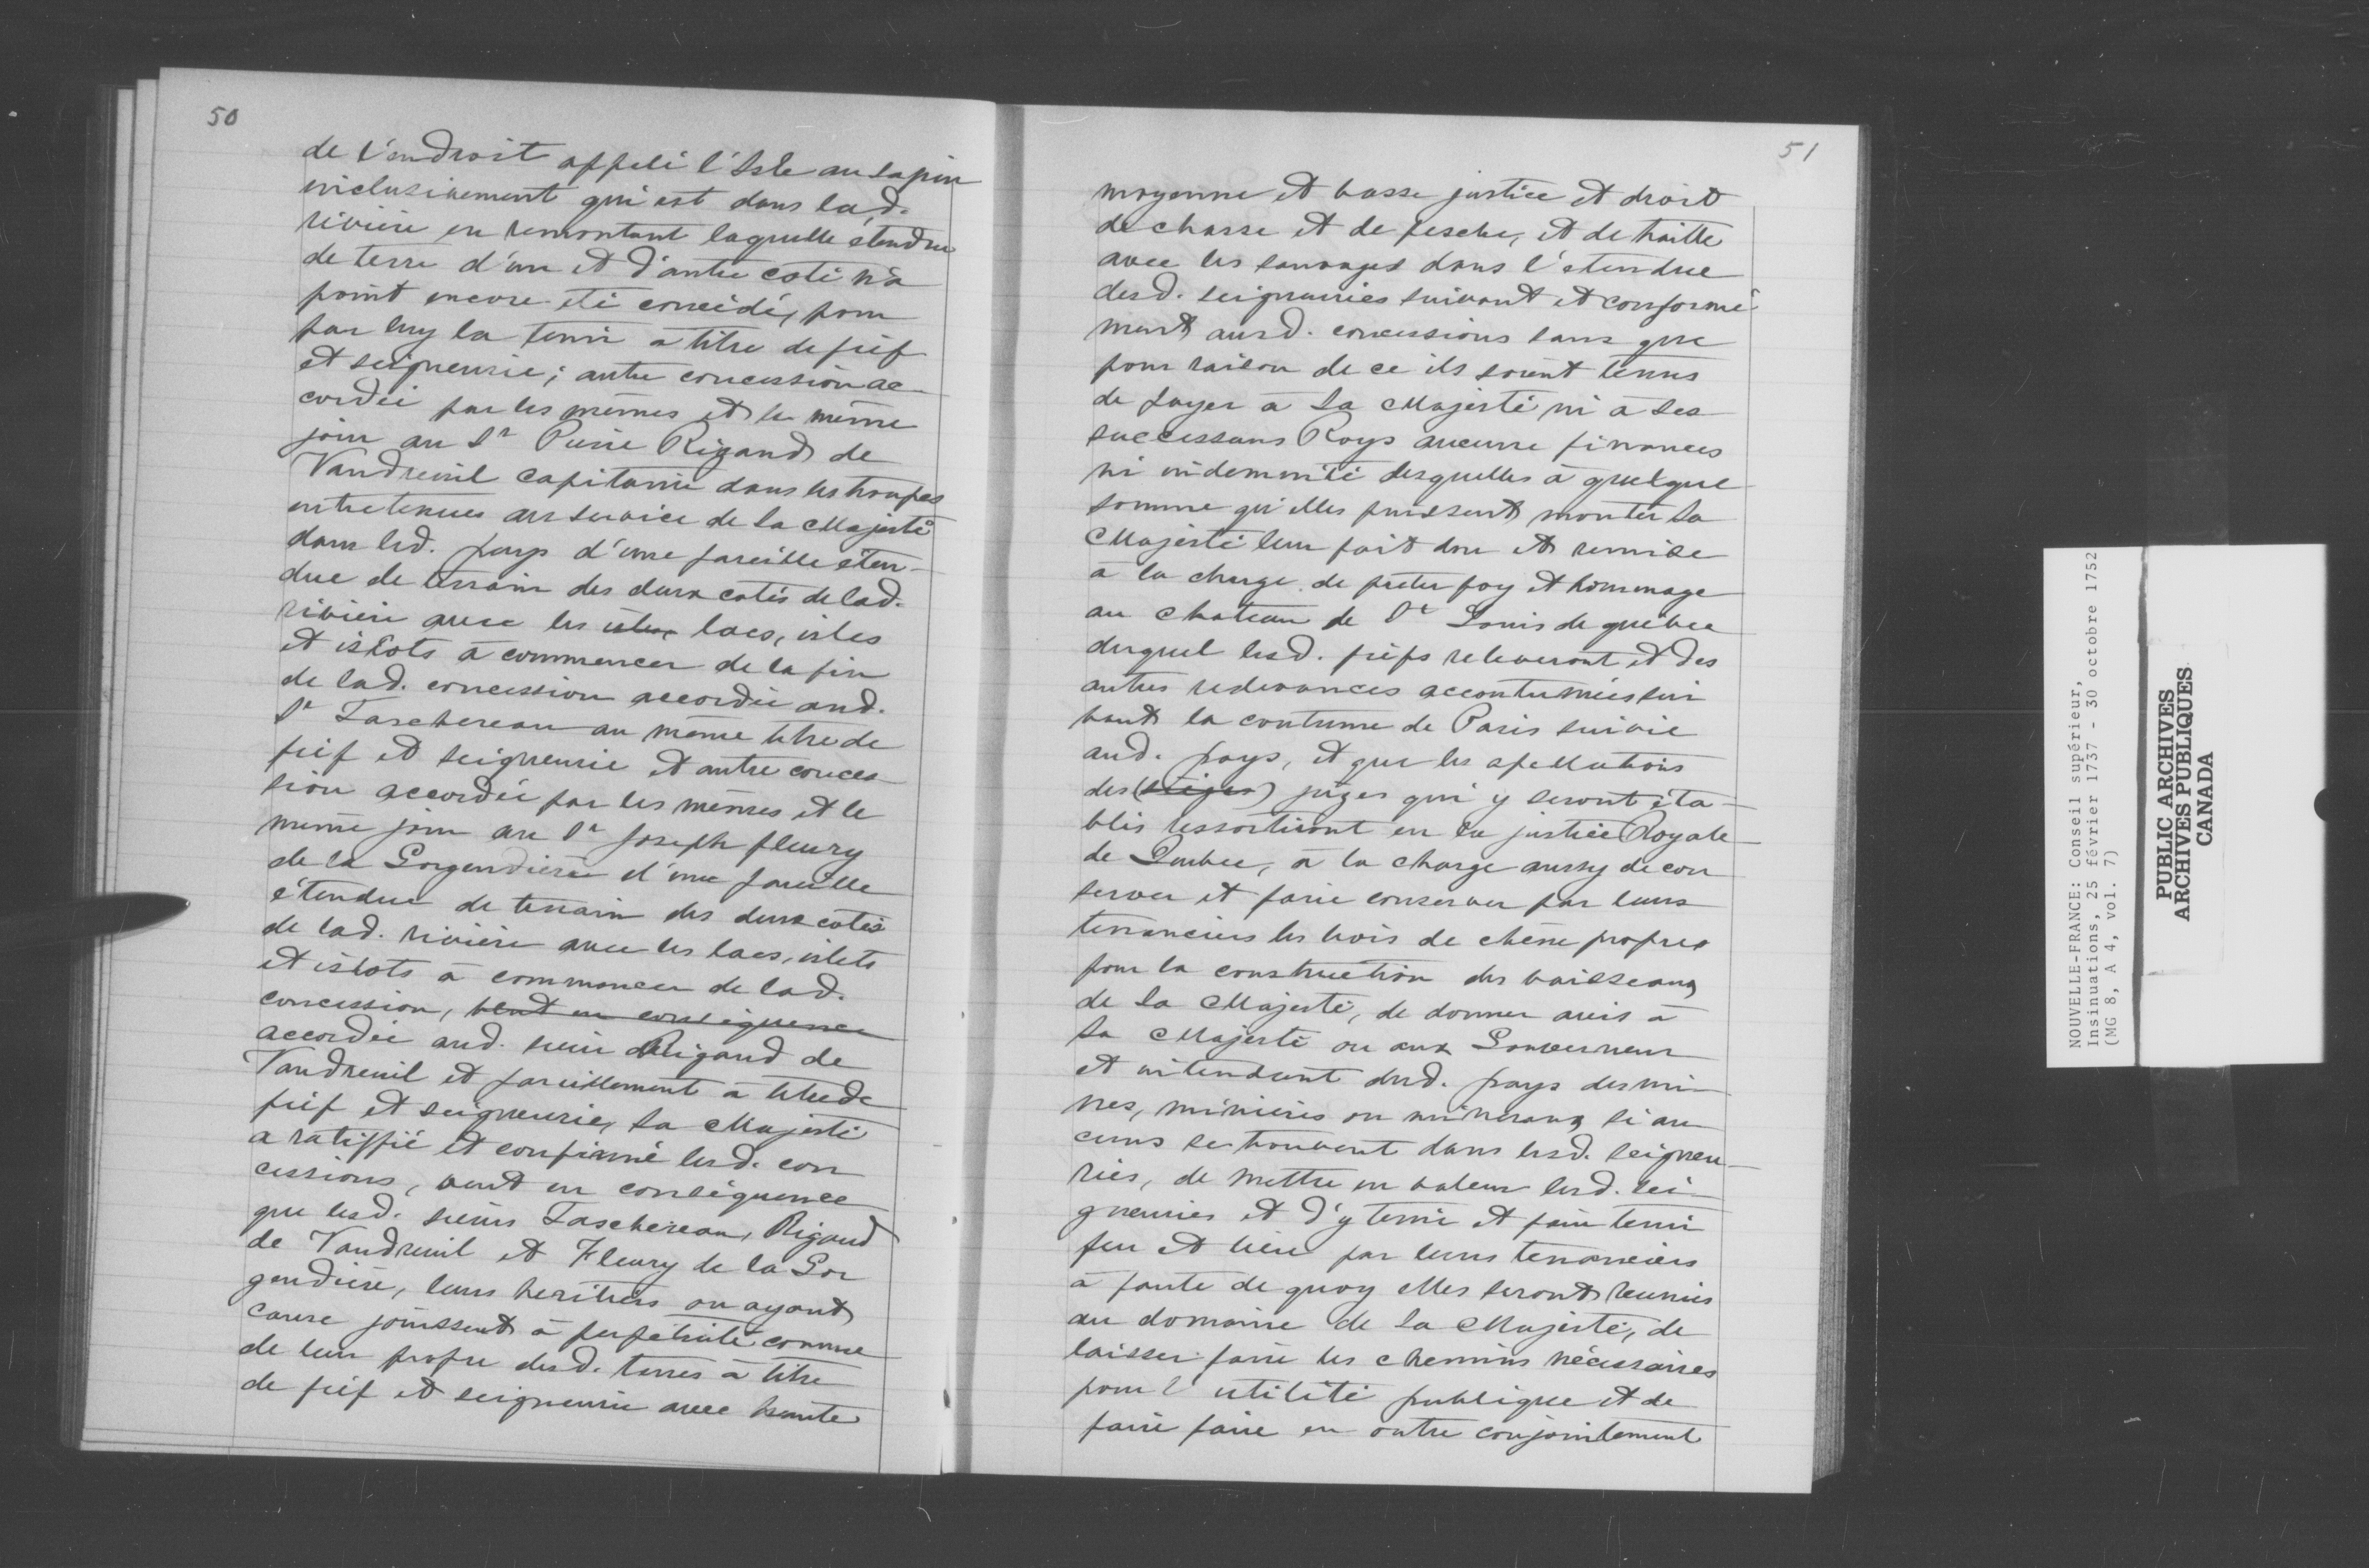 50
de l'endroit appelé l'Isle au sapin
inclusivement qui est dans lad.
rivière en remontant laquelle étendue
de terre d'un et d'autre coté n'a
point encore été concédé, pour
par luy la tenir à titre de fief
et seigneurie; autre concession ac-
cordée par les mêmes et le même
jour au Sr Pierre Rigaud de
Vaudreuil capitaine dans les troupes
entretenues au service de Sa Majesté
dans led. pays d'une pareille éten-
due de terrain des deux cotés de lad.
rivière avec les isles, lacs, isles
et islots à commencer de la fin
de lad. concession accordée aud.
Sr Taschereau au même titre de
fief et seigneurie et autre conces
sion accordée par les mêmes et le
même jour au Sr Joseph fleury
de la Gorgendière d'une pareille
étendue de terrain des deux cotés
de lad. rivière avec les lacs, islets
et islots à commencer de lad.
concession, veut en conséquence
accordée aud. sieur Rigaud de
Vaudreuil et pareillement à titre de
fief et seigneurie, Sa Majesté
a ratiffié et confirmé lesd. con
cessions, veut en conséquence
que lesd. sieurs Taschereau, Rigaud
de Vaudreuil et Fleury de la Gor
gendière, leurs heritiers ou ayant
cause jouissent à perpétuité comme
de leur propre desd. terres à titre
de fief et seigneurie avec haute
51
moyenne et basse justice et droit
de chasse et de pesche, et de traitte
avec les sauvages dans l'étendue
desd. seigneuries suivant et conformé
ment ausd. concessions sans que
pour raison de ce ils soient tenus
de payer à Sa Majesté ni à ses
successeurs Roys aucune finances
ni indemnité desquelles à quelque
somme qu'elles puissent monter Sa
Majesté leur fait don et remise
à la charge de preter foy et hommage
au chateau de St Louis de quebec
duquel lesd. fiefs releveront et des
autres redevances accoutumées sui
vant la coutume de Paris suivie
aud. pays, et que les apellations
des (sièges) juges qui y seront éta-
blis ressortiront en la justice Royale
de Quebec, à la charge aussy de con
server et faire conserver par leurs
tenanciers les bois de chêne propres
pour la construction des vaisseaux
de Sa Majesté, de donner avis à
Sa Majesté ou aux Gouverneur
et intendant dud. pays des mi-
nes, minières ou mineraux si au
cuns se trouvent dans lesd. seigneu-
ries, de mettre en valeur lesd. sei-
gneuries et d'y tenir et faire tenir
feu et lieu par leurs tenanciers
à faute de quoy elles seront reunies
au domaine de Sa Majesté, de
laisser faire les chemins nécessaires
pour l'utilité publique et de
faire faire en outre conjointement
NOUVELLE-FRANCE: Conseil supérieur,
Insinuations, 25 février 1737 - 30 octobre 1752
(MG 8, A 4, vol. 7)
PUBLIC ARCHIVES
ARCHIVES PUBLIQUES
CANADA